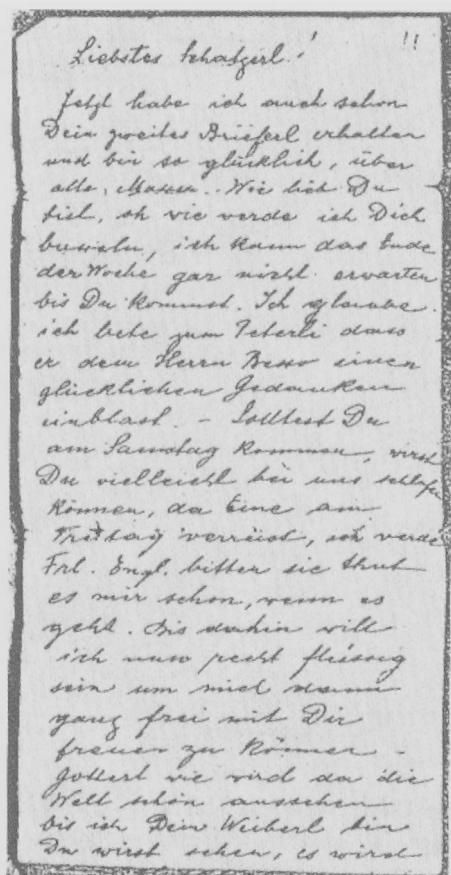 11
Liebstes Schatzerl!
Jetzt habe ich auch schon
Dein zweites Brieferl erhalten
und bin so glücklich, über
alle Massen. Wie lieb Du
bist, oh wie werde ich Dich
busseln, ich kann das Ende
der Woche gar nicht erwarten
bis Du kommst. Ich glaube
ich bete zum Peterli dass
er dem Herrn Besso einen
glücklichen Gedanken
einblast. – Solltest Du
am Samstag kommen, wirst
Du vielleicht bei uns schlafen
können, da Eine am
Freitag verreist, ich werde
Frl. Engl. bitten sie thut
es mir schon, wenn es
geht. Bis dahin will
ich nun recht fleissig
sein um mich dann
ganz frei mit Dir
freuen zu können –
Gotterl wie wird da die
Welt schön aussehen
bis ich Dein Weiberl bin
Du wirst sehen, es wird